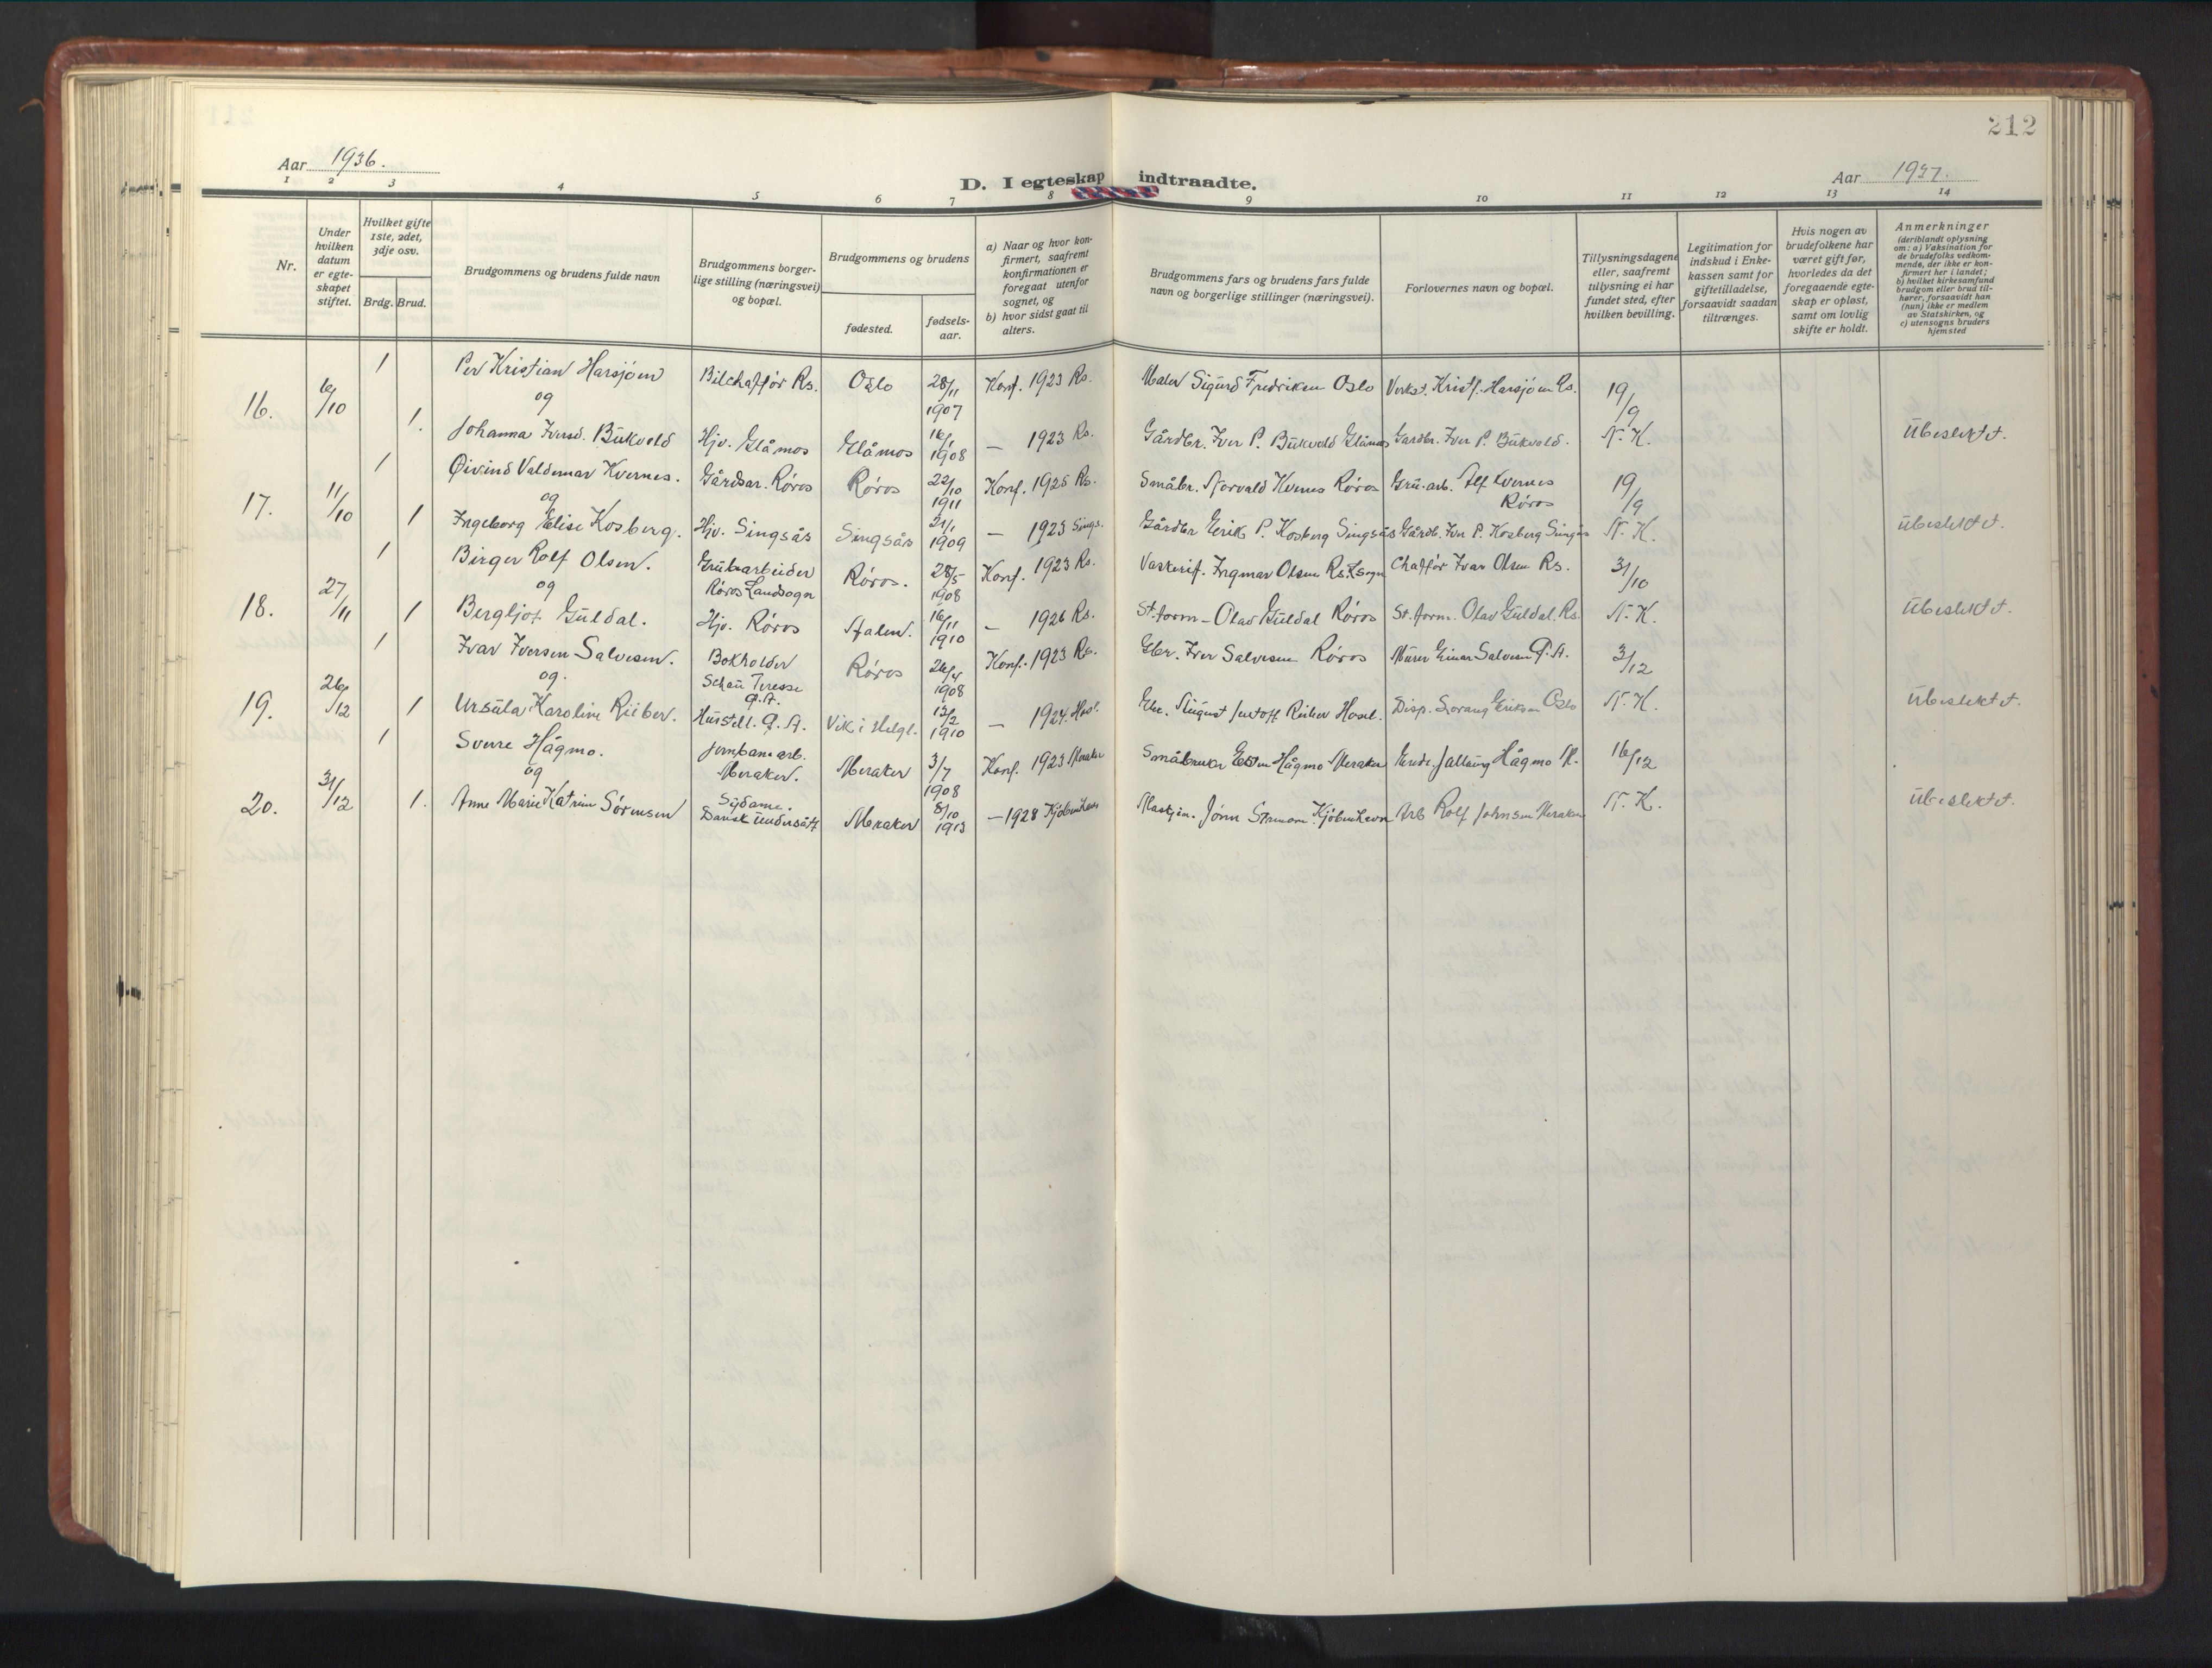 212
Aar 1936.
D. I egteskap indtraadte.
Aar 1937.
1 2 3 4 5 6 7 8 9 10 11 12 13 14
Nr.
Under hvilken datum er egteskapet stiftet.
Hvilket gifte 1ste, 2det, 3dje osv.
Brdg. Brud.
Brudgommens og brudens fulde navn
Brudgommens borgerlige stilling (næringsvei) og bopæl.
Brudgommens og brudens
fødested.
fødselsaar.
a) Naar og hvor konfirmert, saafremt konfirmationen er foregaat utenfor sognet, og
b) hvor sidst gaat til alters.
Brudgommens fars og brudens fars fulde navn og borgerlige stillinger (næringsvei).
Forlovernes navn og bopæl.
Tillysningsdagene eller, saafremt tillysning ei har fundet sted, efter hvilken bevilling.
Legitimation for indskud i Enkekassen samt for giftetilladelse, forsaavidt saadan tiltrænges.
Hvis nogen av brudefolkene har været gift før, hvorledes da det foregaaende egteskap er opløst, samt om lovlig skifte er holdt.
Anmerkninger
(deriblandt oplysning om: a) Vaksination for de brudefolks vedkommende, der ikke er konfirmert her i landet; b) hvilket kirkesamfund brudgom eller brud tilhører, forsaavidt han (hun) ikke er medlem av Statskirken, og c) utensogns bruders hjemsted
16. 6/10 1 Per Kristian Harsjøen Bilchaffør Rs. Oslo 28/11 1907 Konf. 1923 Rs. Maler Sigurd Fredriksen Oslo Verkst. Kristf. Harsjøen Rs. 19/9
og
1. Johanna Iversd. Bukvold Hjv. Glåmos Glåmos 16/1 1908 — 1923 Rs. Gårdbr. Iver P. Bukvold Glåmos Gardbr. Iver P. Bukvold. N. K. Ubeslektet.
17. 11/10 1 Øivind Valdemar Kvernes. Gårdsar. Røros Røros 22/10 1911 Konf. 1925 Rs. Småbr. Norvald Kvernes Røros Gru. arb. Alf Kvernes Røros 19/9
og
1 Ingeborg Elise Kosberg. Hjv. Singsås Singsås 21/1 1909 — 1923 Sings. Gårdbr Erik P. Kosberg Singsås Gårdb. Iver P. Kosberg Singsås N. K. Ubeslektet.
18. 27/11 1 Birger Rolf Olsen. Grubarbeider Røros Landsogn Røros. 28/5 1908 Konf. 1923 Rs. Ingmar Olsen Rs. Lsogn Chaffør Ivar Olsen Rs. 31/10
og
1 Bergljot Guldal. Hjv. Røros Aalen. 16/11 1910 — 1926 Rs. St. form — Olav Guldal Røros St. form. Olav Guldal. Rs. N. K. Ubeslektet.
19. 26/12 1 Ivar Iversen Salvesen. Bokholder Røros 26/4 1908 Konf. 1923 Rs. Gbr. Iver Salvesen Røros Murer Einar Salvesen 3/12
og.
1 Ursula Karoline Riiber. Vik i Helgl. 13/2 1910 — 1924. Gbr. August Riiber Eriksen Oslo N. K. Ubeslektet.
20. 31/12 1 Sverre Hågmo. Jernbanearb. Meraker. Meraker 3/7 1908 Konf. 1923 Meraker Småbruker Hågmo Meraker Hågmo M. 16/12
og
1. Anne Marie Katrine Sørensen Sydame. Dansk Undersått Meraker 8/10 1913 — 1928 Kjøbenhavn Maskjin. Jønn Kjøbenhavn Arb Rolf Johnsen Meraker N. K. Ubeslektet.